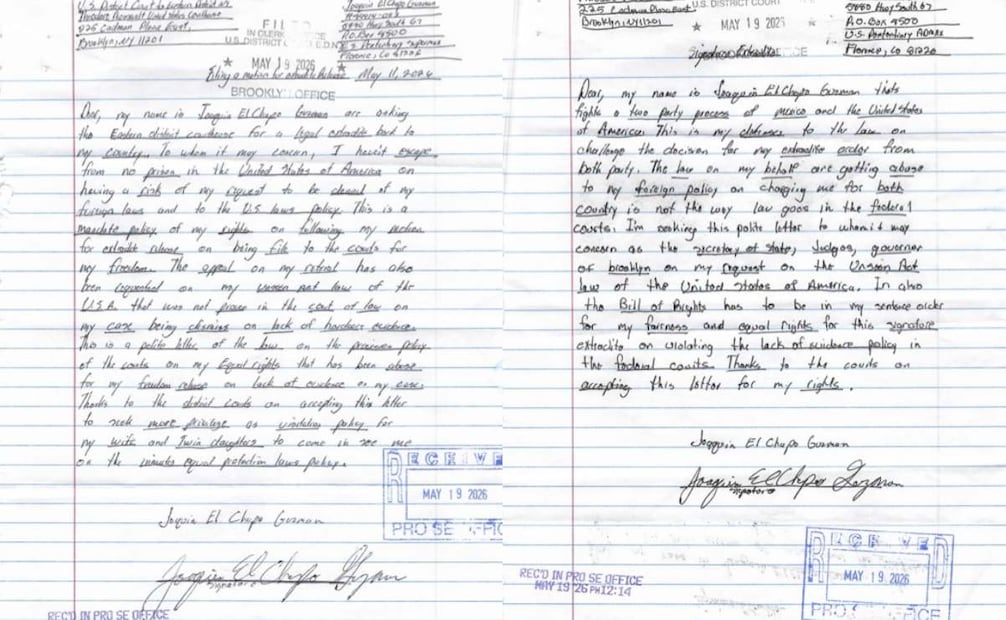 U.S. District Court Eastern District of
Theodore Roosevelt United States Courthouse
225 Cadman Plaza East,
Brooklyn, NY 11201
Joaquin El Chapo Guzman
5880 Hwy South 67
P.O. Box 8500
Florence, Co 81226
FILED
IN CLERK'S OFFICE
U.S. DISTRICT COURT E.D.N.Y.
★ MAY 19 2026 ★
BROOKLYN OFFICE
Filing a motion for release May 11, 2026
Dear, my name is Joaquin El Chapo Guzman are asking
the Eastern district courthouse for a legal extradite back to
my country. To whom it may concern, I haven't escape
from no prison in the United States of America on
having a risk of my request to be denied of my
foreign laws and to the U.S. laws policy. This is a
mandate policy of my rights on following my motion
for release on being file to the courts for
my freedom. The appeal on my retrial has also
been requested on my law of the
U.S.A. that was not prove in the court of law on
my case being dismiss on lack of evidence.
This is a polite letter of the law on the policy
of the courts on my Equal rights that has been abuse
for my freedom release on lack of evidence on my case.
Thanks to the district courts on accepting this letter
to seek more privilege as visitation policy for
my wife and Twin daughters to come in see me
on the minutes equal protection laws policy.
Joaquin El Chapo Guzman
Joaquin El Chapo Guzman
signature
RECEIVED
MAY 19 2026
PRO SE OFFIC
REC'D IN PRO SE OFFICE
225 Cadman Plaza East
Brooklyn, NY 11201
U.S. DISTRICT COURT
★ MAY 19 2026 ★
5880 Hwy South 67
P.O. Box 8500
U.S. Penitentiary ADMAX
Florence, Co 81226
Signature
Dear, my name is Joaquin El Chapo Guzman thats
fights a two party process of mexico and the United States
of America. This is my to the law on
challenge the decision for my order from
both party. The law on my behalf are getting abuse
to my foreign policy on charging me for both
country is not the way law goes in the federal
courts. I'm seeking this polite letter to whom it may
concern as the secretary of state, Judges, governor
of brooklyn on my request on the
law of the United States of America. In also
the Bill of Rights has to be in my sentence order
for my fairness and equal rights for this signature
on violating the lack of evidence policy in
the federal courts. Thanks to the courts on
accepting this letter for my rights.
Joaquin El Chapo Guzman
Joaquin El Chapo Guzman
signature
REC'D IN PRO SE OFFICE
MAY 19 '26 PM12:14
RECEIVED
MAY 19 2026
PRO S